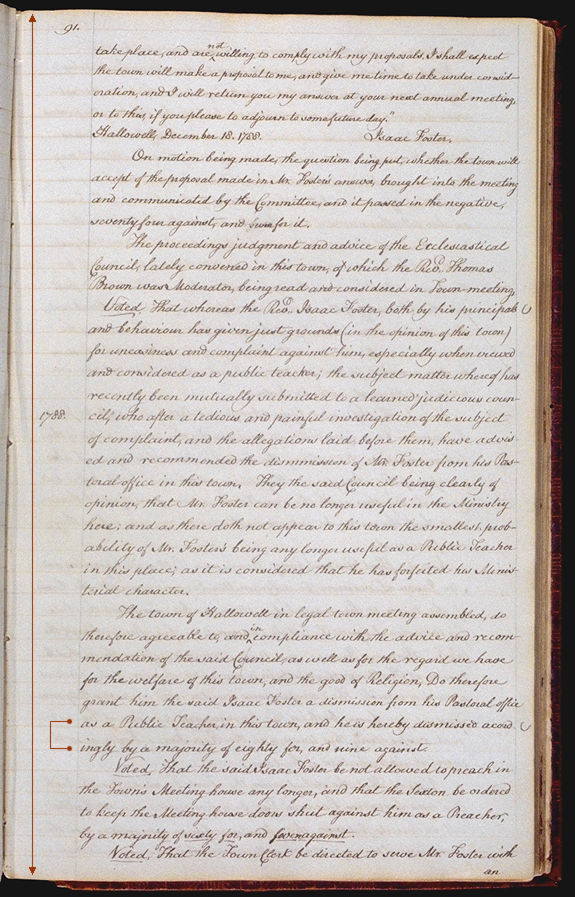 91.
take place, and are not willing to comply with my proposals, I shall expect
the town will make a proposal to me, and give me time to take under consid-
eration, and I will return you my answer at your next annual meeting,
or to this, if you please to adjourn to some future day."
Hallowell, December 18. 1788. Isaac Foster.
On motion being made, the question being put, whether the town will
accept of the proposal made in Mr. Foster's answer, brought into the meeting
and communicated by the Committee, and it passed in the negative,
seventy four against, and for it.
The proceedings judgment and advice of the Ecclesiastical
Council, lately convened in this town, of which the Revd. Thomas
Brown was Moderator, being read and considered in Town-meeting,
Voted, That whereas the Revd. Isaac Foster, both by his principals
and behaviour has given just grounds (in the opinion of this town)
for uneasiness and complaint against him, especially when viewed
and considered as a public teacher; the subject matter whereof has
recently been mutually submitted to a learned judicious coun-
cil, who after a tedious and painful investigation of the subject
1788.
of complaint, and the allegations laid before them, have advis-
ed and recommended the dismission of Mr. Foster from his Pas-
toral office in this town. They the said Council being clearly of
opinion, that Mr. Foster can be no longer useful in the Ministry
here; and as there doth not appear to this town the smallest prob-
ability of Mr. Foster's being any longer useful as a Public Teacher
in this place; as it is considered that he has forfeited his Minis-
terial character.
The town of Hallowell in legal town meeting assembled, do
therefore agreeable to, and in compliance with the advice and recom-
mendation of the said Council, as well as for the regard we have
for the welfare of this town, and the good of Religion, Do therefore
grant him the said Isaac Foster a dismission from his Pastoral office
as a Public Teacher, in this town, and he is hereby dismissed acord-
ingly by a majority of eighty for, and nine against.
Voted, That the said Isaac Foster be not allowed to preach in
the Town's Meeting house any longer, and that the Sexton be ordered
to keep the Meeting house doors shut against him as a Preacher,
by a majority of sixty for, and seven against.
Voted, That the Town Clerk be directed to serve Mr. Foster with
an